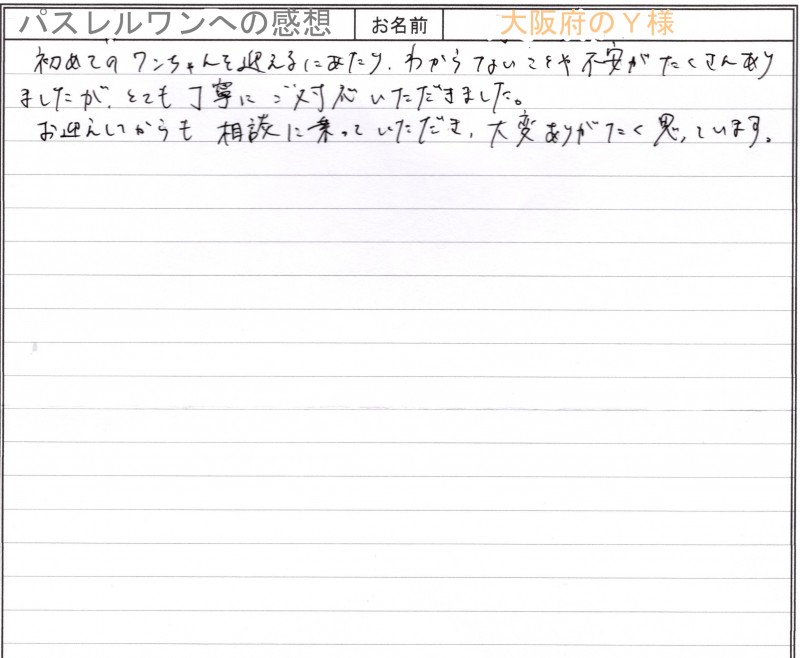 パスレルワンへの感想 お名前 大阪府のＹ様
初めてのワンちゃんを迎えるにあたり、わからないことや不安がたくさんあり
ましたが、とても丁寧にご対応いただきました。
お迎えしてからも相談に乗っていただき、大変ありがたく思っています。